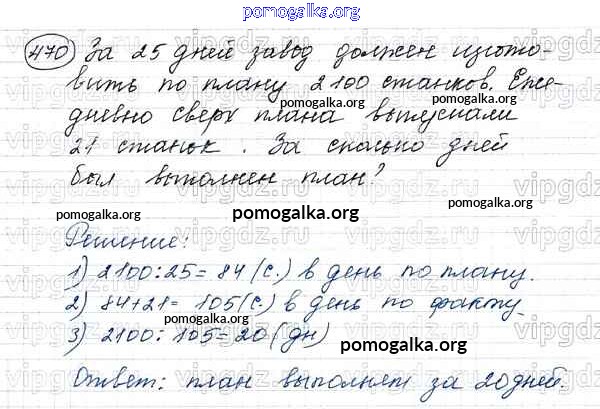 pomogalka.org
470 За 25 дней завод должен изгото-
вить по плану 2100 станков. Еже-
дневно сверх плана выпускали
21 станок. За сколько дней
был выполнен план?
pomogalka.org pomogalka.org pomogalka.org
Решение:
1) 2100:25=84 (с.) в день по плану.
2) 84+21= 105(с.) в день по факту
3) 2100: 105=20 (дн)
pomogalka.org
Ответ: план выполнят за 20 дней.
pomogalka.org